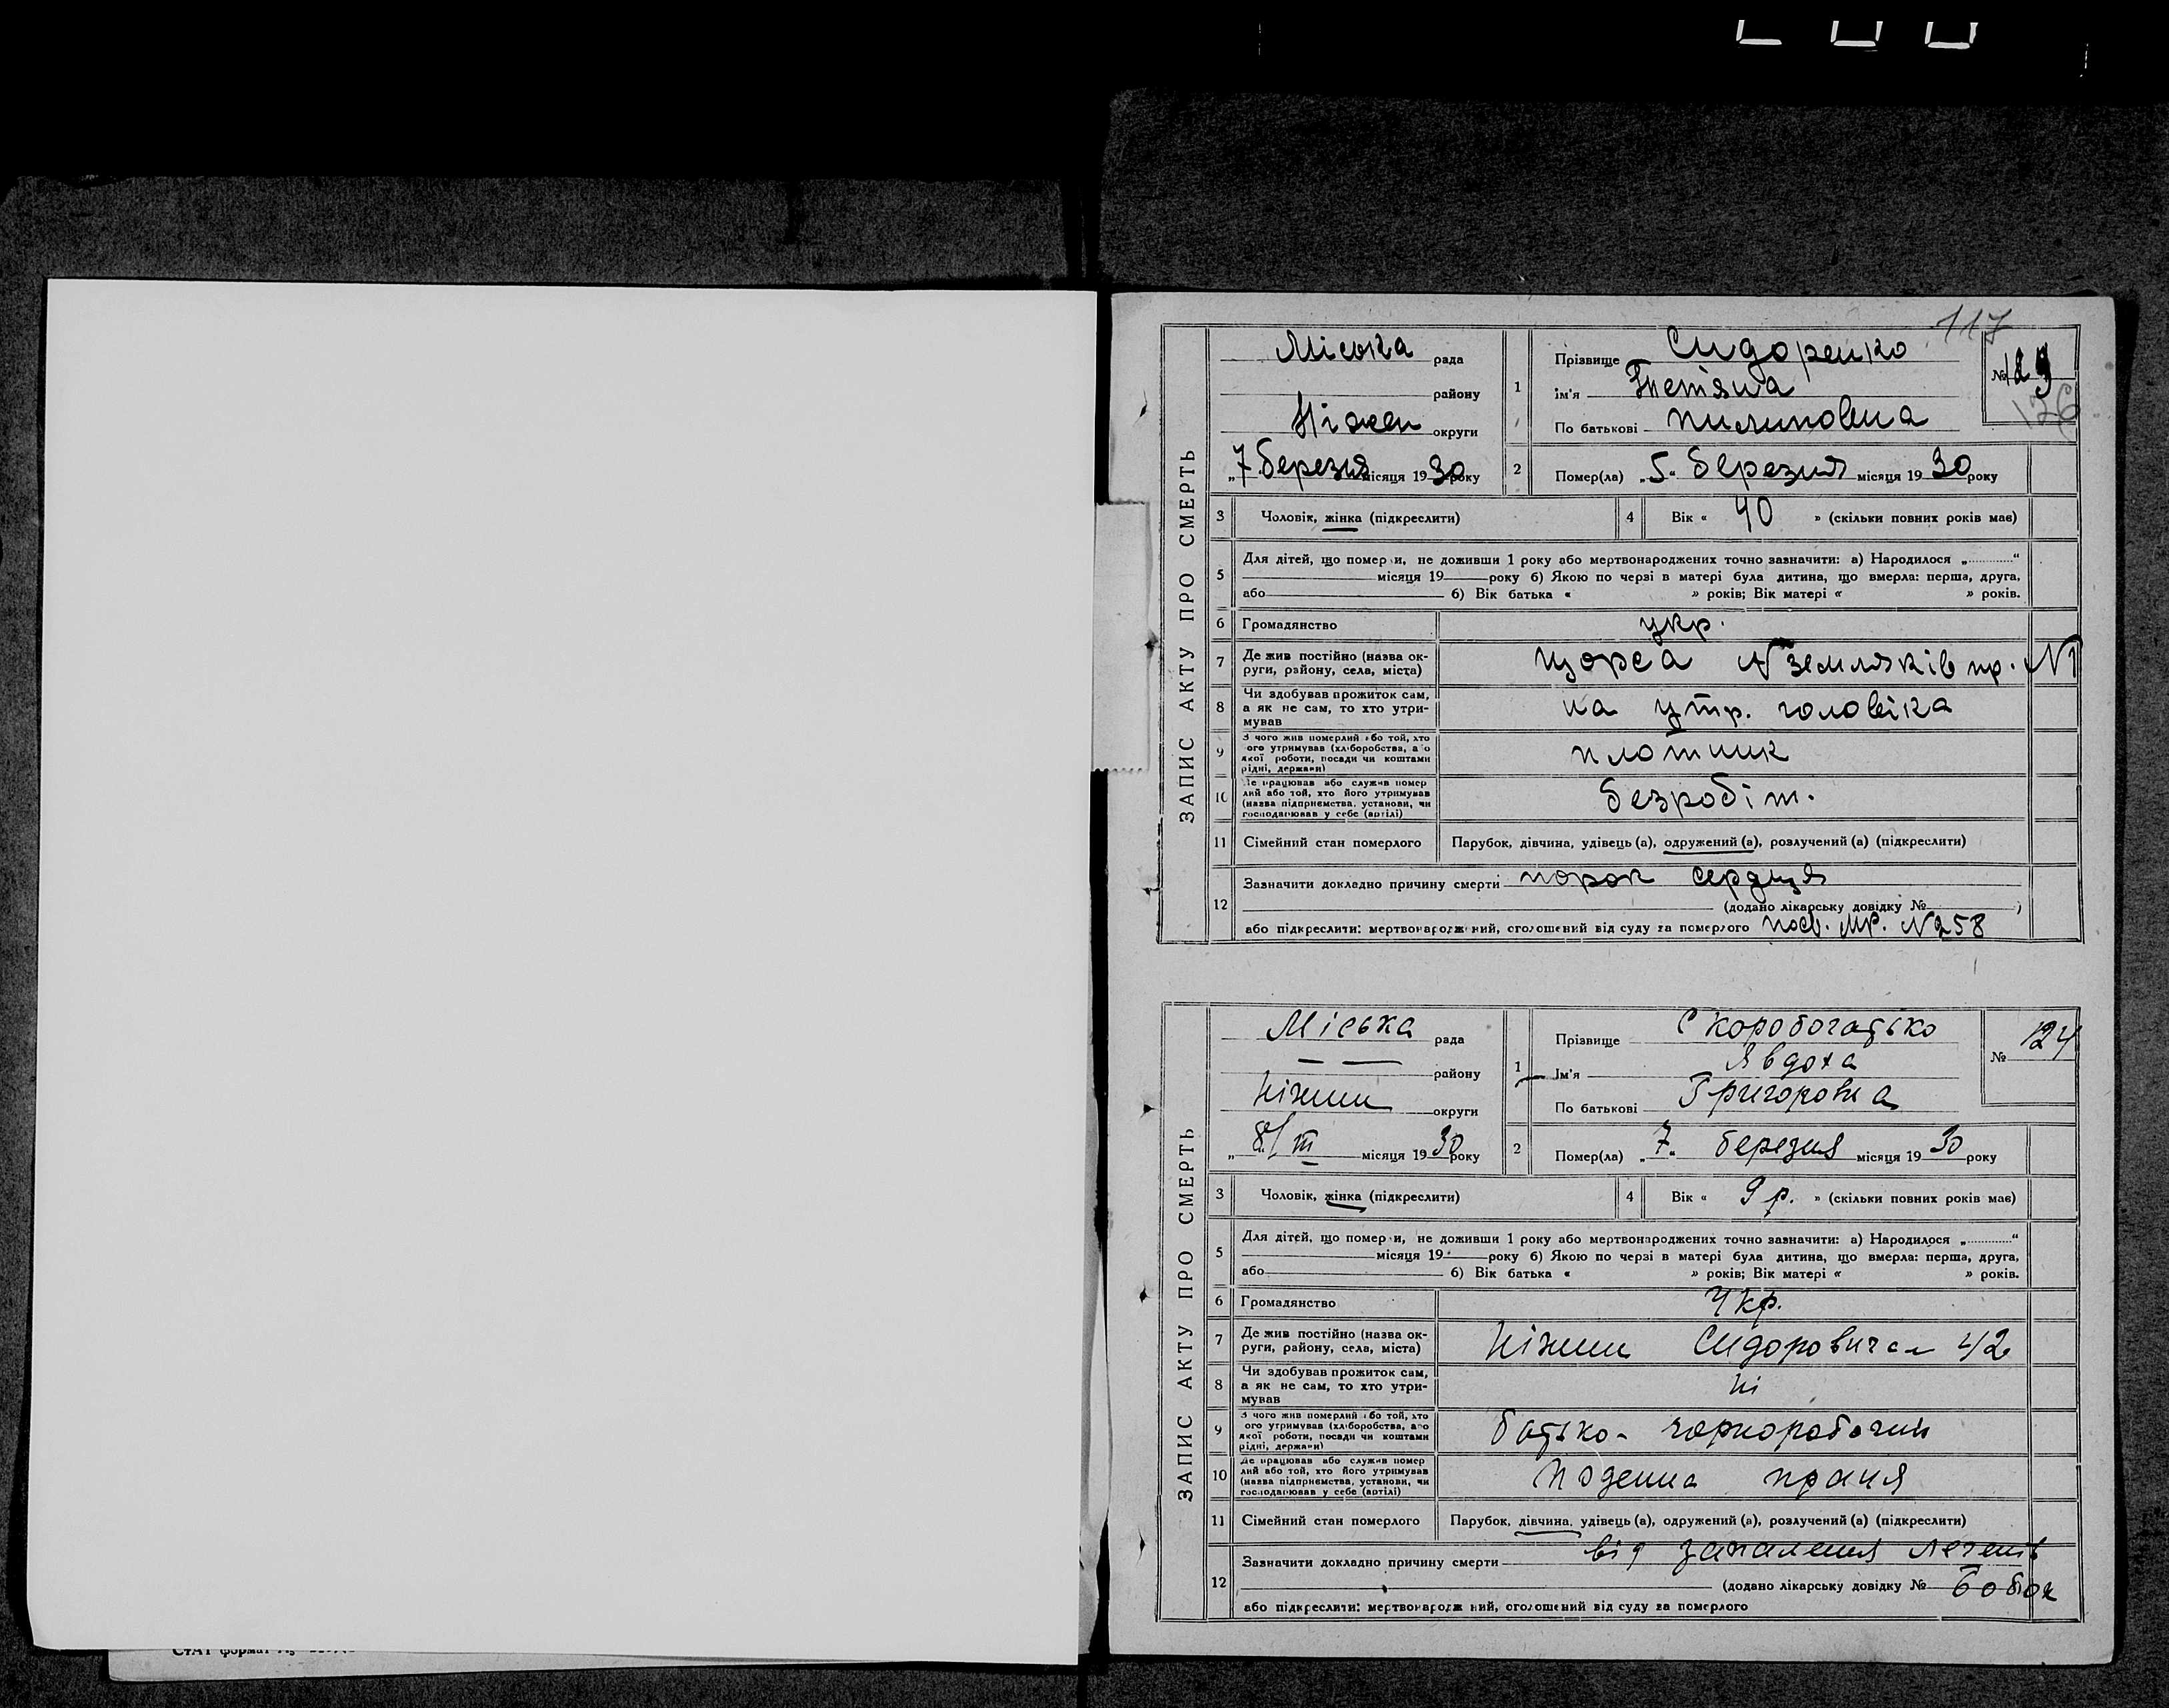 117
ЗАПИС АКТУ ПРО СМЕРТЬ
Міська рада
району
Ніжен округи
„7 березня місяця 1930 року
1 Прізвище Сидоренко
ім'я Тетяна
По батькові Пилиповна
№ 123
126
2 Помер(ла) „5“ березня місяця 1930 року
3 Чоловік, жінка (підкреслити)
4 Вік « 40 » (скільки повних років має)
5 Для дітей, що померли, не доживши 1 року або мертвонароджених точно зазначити: а) Народилося „............“
місяця 19 року б) Якою по черзі в матері була дитина, що вмерла: перша, друга,
або б) Вік батька « » років; Вік матері « » років.
6 Громадянство укр.
7 Де жив постійно (назва ок-
руги, району, села, міста) Щорса № земляків пр. №1
8 Чи здобував прожиток сам,
а як не сам, то хто утри-
мував на утр. чоловіка
9 З чого жив померлий або той, хто
ого утримував (хліборобства, або
якої роботи, посади чи коштами
рідні, держави) плотник
10 Де працював або служив помер
лий або той, хто його утримував
(назва підприємства, установи, чи
господарював у себе (артілі) безробіт.
11 Сімейний стан померлого Парубок, дівчина, удівець (а), одружений (а), розлучений (а) (підкреслити)
12 Зазначити докладно причину смерти порок сердця
(додано лікарську довідку № )
або підкреслити: мертвонароджений, оголошений від суду за померлого посв. МР. №258
ЗАПИС АКТУ ПРО СМЕРТЬ
Міська рада
району
Ніжин округи
„8“/III місяця 1930 року
1 Прізвище Скоробогатько
Ім'я Явдоха
По батькові Григоровна
№ 124
2 Помер(ла) „7“ березня місяця 1930 року
3 Чоловік, жінка (підкреслити)
4 Вік « 9 р. » (скільки повних років має)
5 Для дітей, що померли, не доживши 1 року або мертвонароджених точно зазначити: а) Народилося „............“
місяця 19 року б) Якою по черзі в матері була дитина, що вмерла: перша, друга,
або б) Вік батька « » років; Вік матері « » років.
6 Громадянство Укр.
7 Де жив постійно (назва ок-
руги, району, села, міста) Ніжин Сидоровича 42
8 Чи здобував прожиток сам,
а як не сам, то хто утри-
мував ні
9 З чого жив померлий або той, хто
ого утримував (хліборобства, або
якої роботи, посади чи коштами
рідні, держави) батько - чорноробочий
10 Де працював або служив помер
лий або той, хто його утримував
(назва підприємства, установи, чи
господарював у себе (артілі) поденна праця
11 Сімейний стан померлого Парубок, дівчина, удівець (а), одружений (а), розлучений (а) (підкреслити)
12 Зазначити докладно причину смерти від запалення легенів
(додано лікарську довідку №
або підкреслити: мертвонародж ний, оголошений від суду за померлого
формат